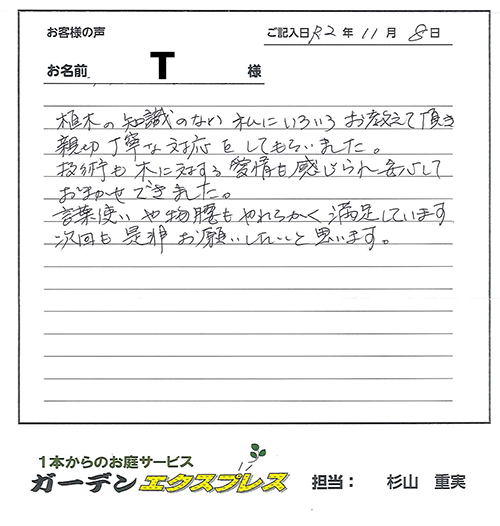 お客様の声
ご記入日 R2 年 11 月 8 日
お名前 T 様
植木の知識のない私にいろいろお教えて頂き
親切丁寧な対応をしてもらいました。
技術も木に対する愛情も感じられ安心して
おまかせできました。
言葉使いや物腰もやわらかく満足しています
次回も是非お願いしたいと思います。
1本からのお庭サービス
ガーデンエクスプレス 担当： 杉山 重実